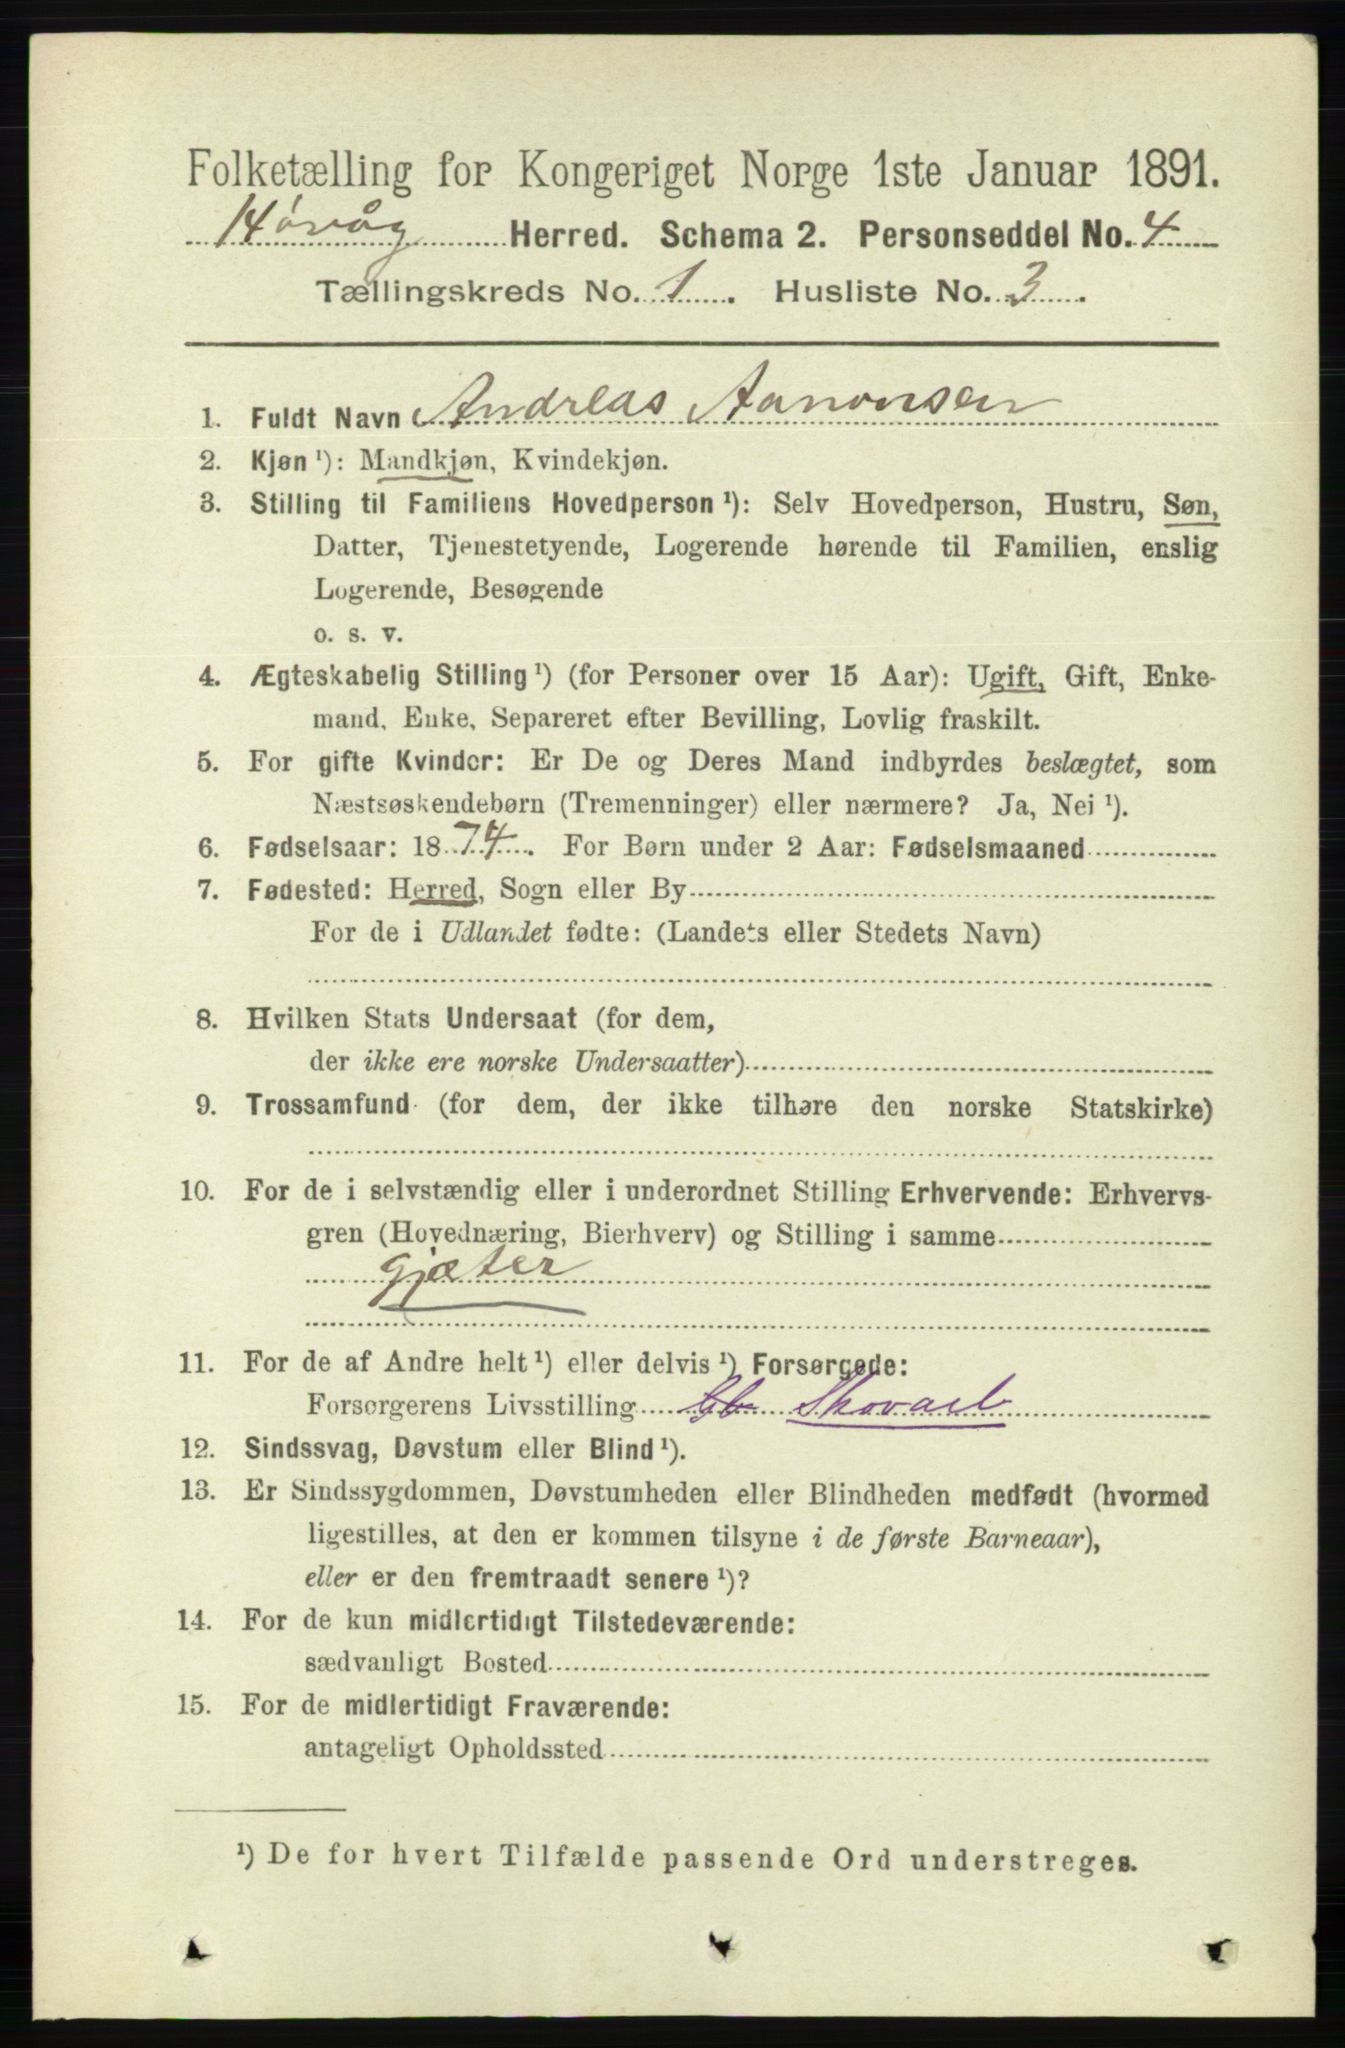 Folketælling for Kongeriget Norge 1ste Januar 1891.
Høvåg Herred. Schema 2. Personseddel No. 4
Tællingskreds No. 1. Husliste No. 3.
1. Fuldt Navn Andreas Aanonsen
2. Kjøn ¹): Mandkjøn, Kvindekjøn.
3. Stilling til Familiens Hovedperson ¹): Selv Hovedperson, Hustru, Søn,
Datter, Tjenestetyende, Logerende hørende til Familien, enslig
Logerende, Besøgende
o. s. v.
4. Ægteskabelig Stilling ¹) (for Personer over 15 Aar): Ugift, Gift, Enke-
mand, Enke, Separeret efter Bevilling, Lovlig fraskilt.
5. For gifte Kvinder: Er De og Deres Mand indbyrdes beslægtet, som
Næstsøskendebørn (Tremenninger) eller nærmere? Ja, Nei ¹).
6. Fødselsaar: 1874. For Børn under 2 Aar: Fødselsmaaned
7. Fødested: Herred, Sogn eller By
For de i Udlandet fødte: (Landets eller Stedets Navn)
8. Hvilken Stats Undersaat (for dem,
der ikke ere norske Undersaatter)
9. Trossamfund (for dem, der ikke tilhøre den norske Statskirke)
10. For de i selvstændig eller i underordnet Stilling Erhvervende: Erhvervs-
gren (Hovednæring, Bierhverv) og Stilling i samme
gjæter
11. For de af Andre helt ¹) eller delvis ¹) Forsørgede:
Forsørgerens Livsstilling
12. Sindssvag, Døvstum eller Blind ¹).
13. Er Sindssygdommen, Døvstumheden eller Blindheden medfødt (hvormed
ligestilles, at den er kommen tilsyne i de første Barneaar),
eller er den fremtraadt senere ¹)?
14. For de kun midlertidigt Tilstedeværende:
sædvanligt Bosted
15. For de midlertidigt Fraværende:
antageligt Opholdssted
¹) De for hvert Tilfælde passende Ord understreges.